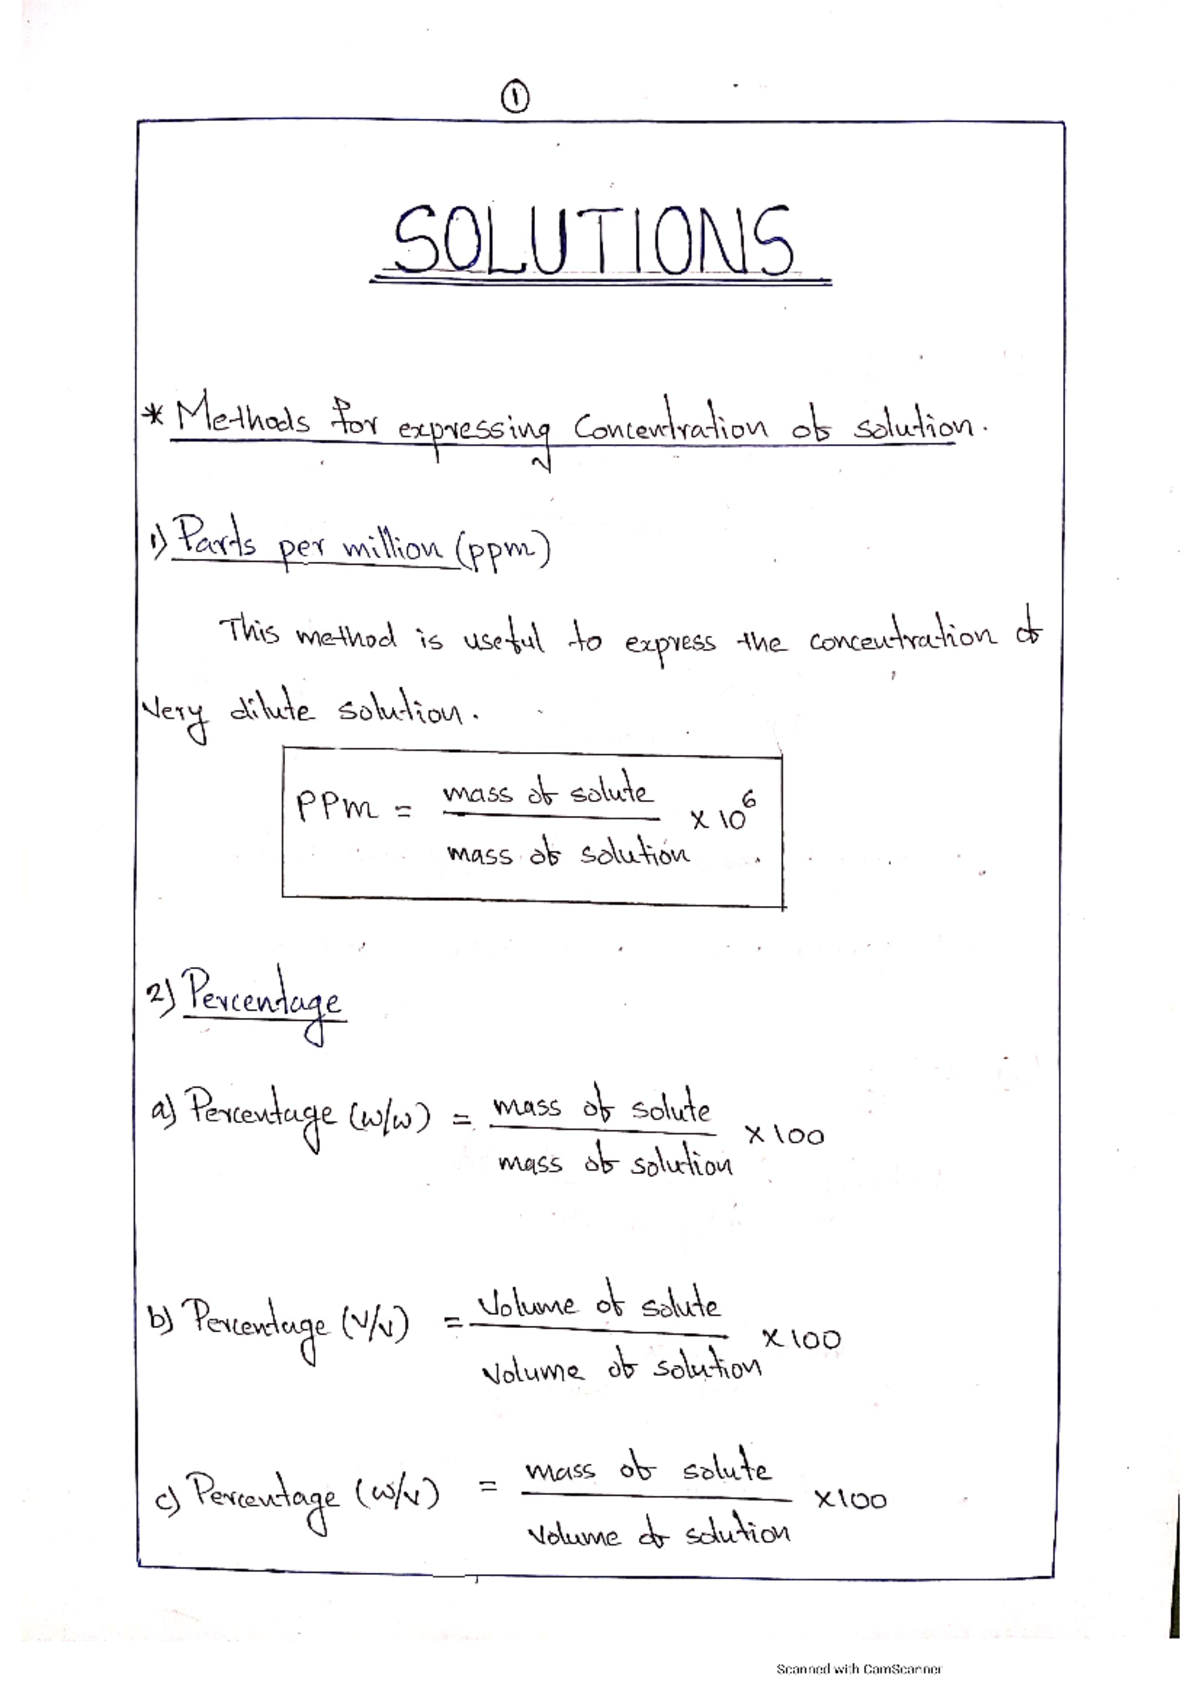 ①
SOLUTIONS
* Methods for expressing Concentration of solution.
1) Parts per million (ppm)
This method is useful to express the concentration of
very dilute solution.
PPm = mass of solute / mass of solution × 10⁶
2) Percentage
a) Percentage (w/w) = mass of solute / mass of solution × 100
b) Percentage (v/v) = Volume of solute / Volume of solution × 100
c) Percentage (w/v) = mass of solute / Volume of solution × 100
Scanned with CamScanner